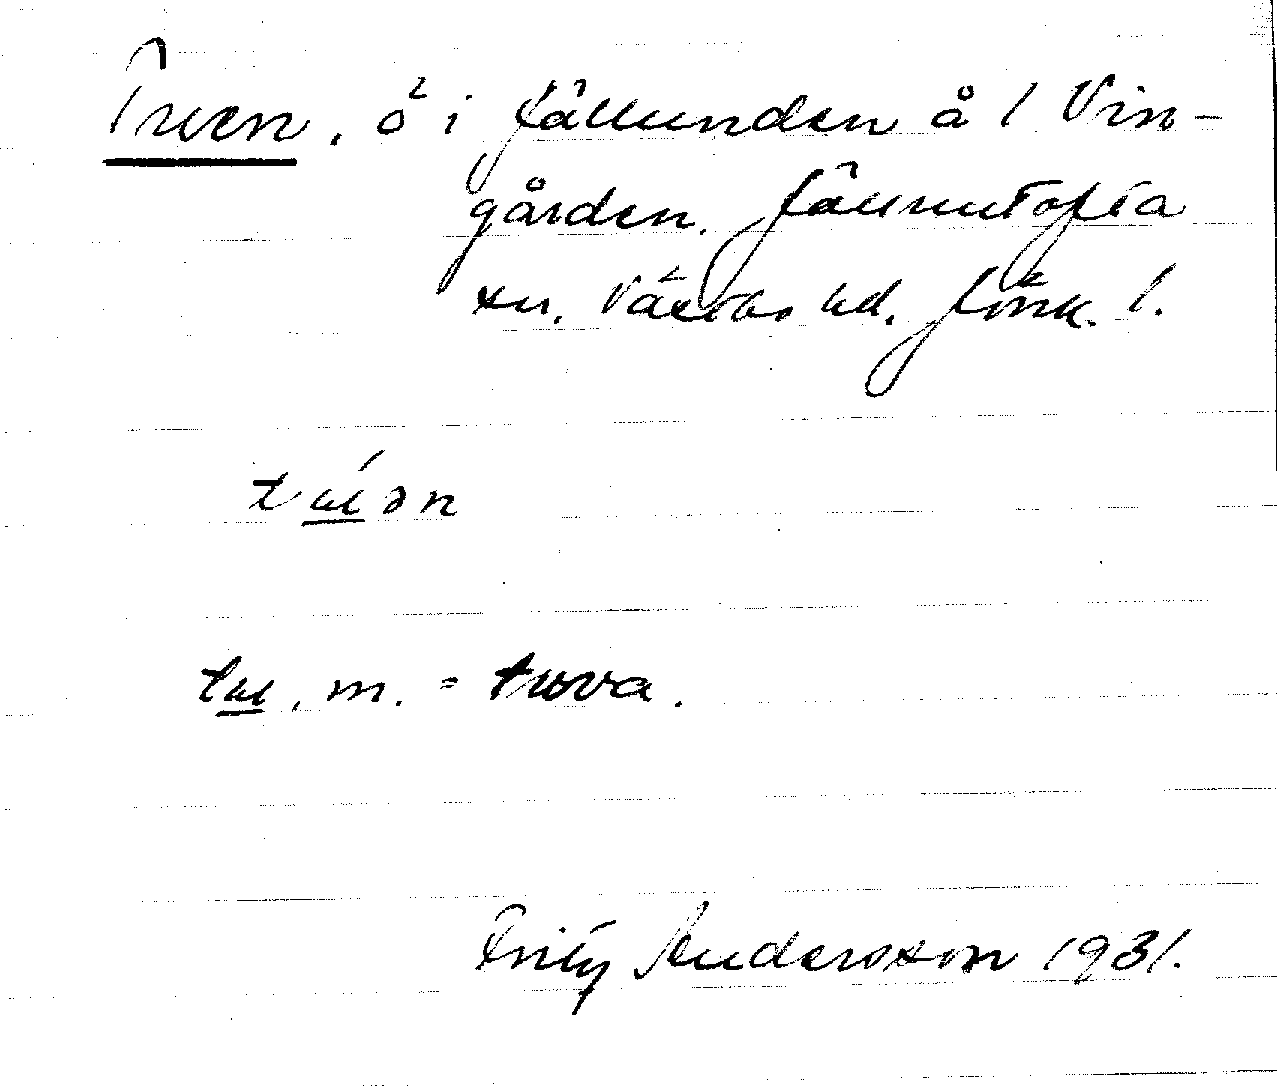 Tuven, ö i fällunden å / Vin-
gården. Fänneutofta
sn. Västbo hd. Jönk. l.
tɯ́ən
tɯ, m. = tuva.
Fritz Andersson 1931.